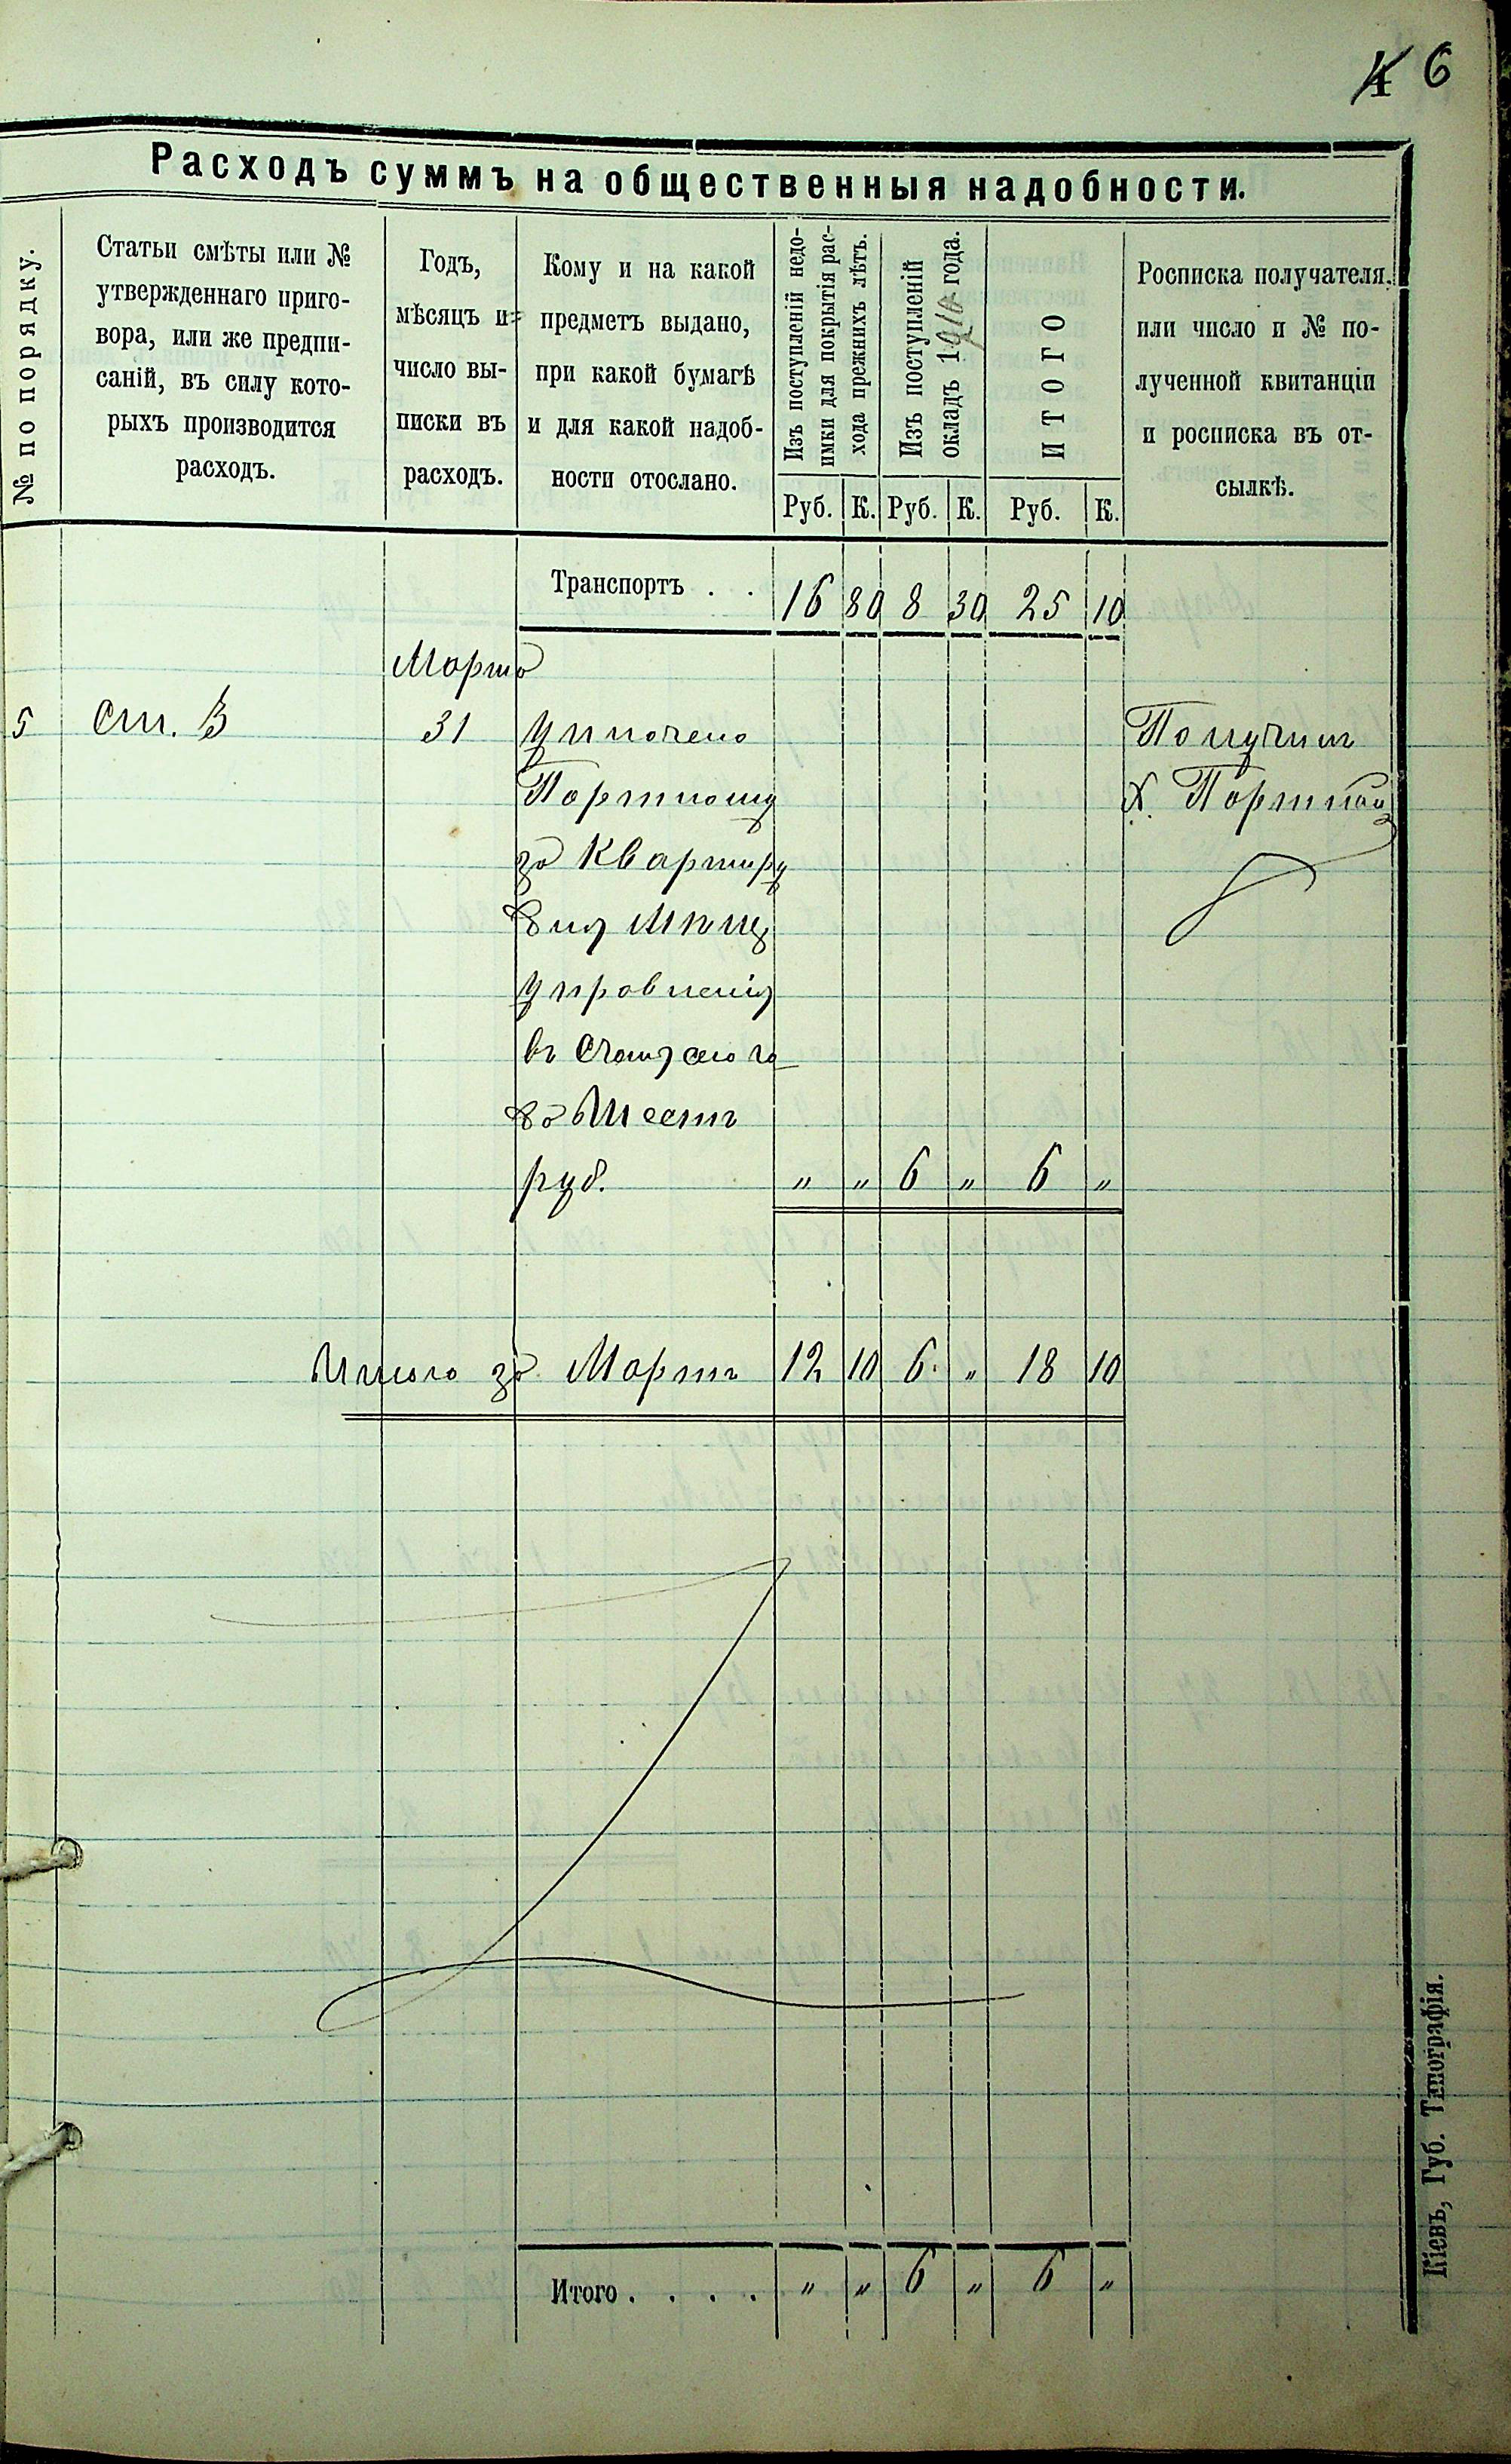 6
Расходъ суммъ на общественныя надобности.
№ по порядку.
Статьи смѣты или №
утвержденнаго приго-
вора, или же предпи-
саній, въ силу кото-
рыхъ производится
расходъ.
Годъ,
мѣсяцъ и
число вы-
писки въ
расходъ.
Кому и на какой
предметъ выдано,
при какой бумагѣ
и для какой надоб-
ности отослано.
Изъ поступленій недо-
имки для покрытія рас-
хода прежнихъ лѣтъ.
Изъ поступленій
окладъ 1910 года.
ИТОГО
Росписка получателя,
или число и № по-
лученной квитанціи
и росписка въ от-
сылкѣ.
Руб. К. Руб. К. Руб. К.
Транспортъ . . 16 80 8 30 25 10
Марта
5 Ст. В 31 Уплочено Получилъ
Портному Х. Портной
за квартиру
для Мѣщ
управленія
въ счетъ сего го
да Шесть
руб. " " 6 " 6 "
Итого за Мартъ 12 10 6 " 18 10
Итого . . . . " " 6 " 6 "
Кіевъ, Губ. Типографія.